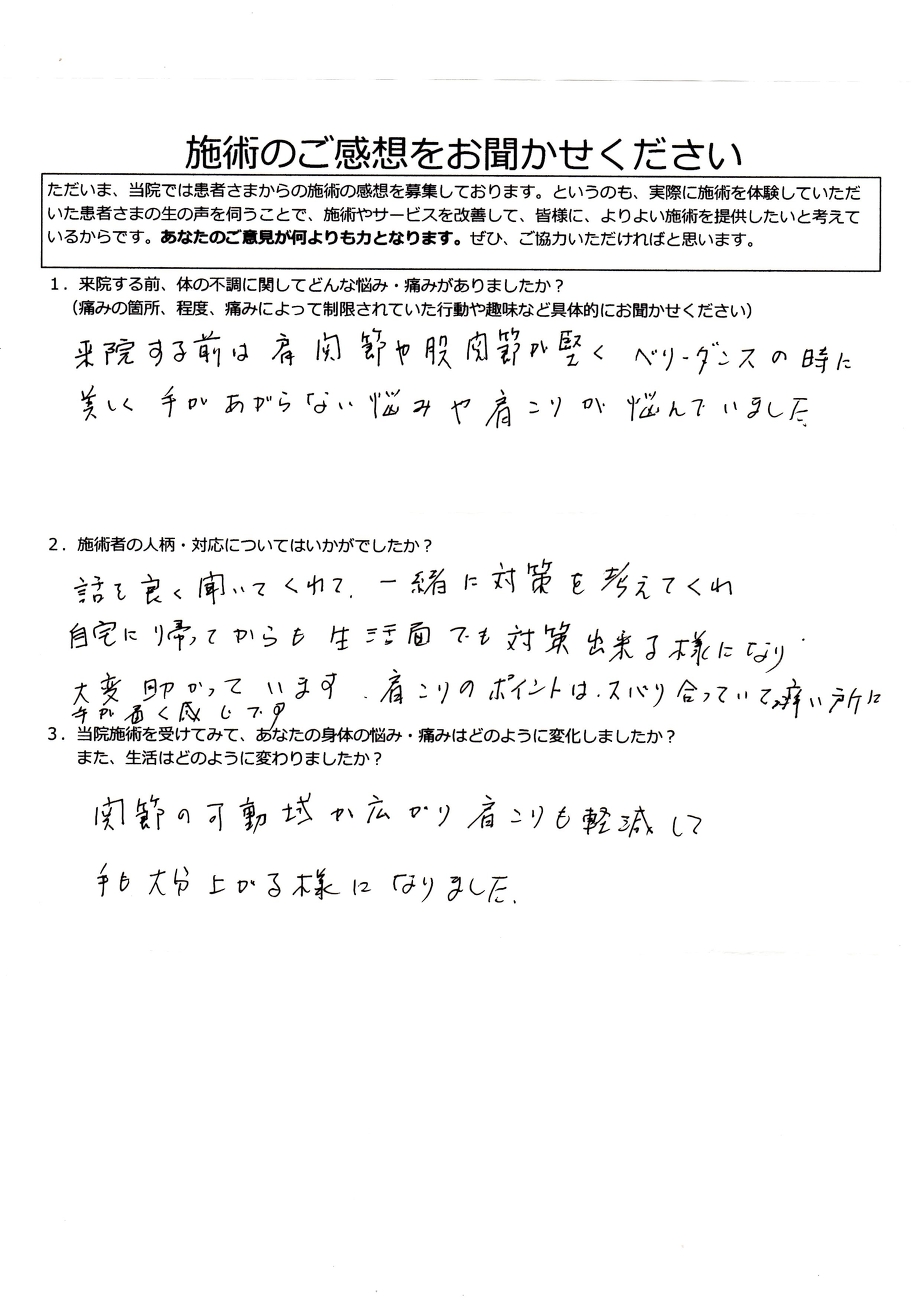 施術のご感想をお聞かせください
ただいま、当院では患者さまからの施術の感想を募集しております。というのも、実際に施術を体験していただ
いた患者さまの生の声を伺うことで、施術やサービスを改善して、皆様に、よりよい施術を提供したいと考えて
いるからです。あなたのご意見が何よりも力となります。ぜひ、ご協力いただければと思います。
1．来院する前、体の不調に関してどんな悩み・痛みがありましたか？
（痛みの箇所、程度、痛みによって制限されていた行動や趣味など具体的にお聞かせください）
来院する前は肩関節や股関節が堅くベリーダンスの時に
美しく手があがらない悩みや肩こりが悩んでいました。
2．施術者の人柄・対応についてはいかがでしたか？
話を良く聞いてくれて、一緒に対策を考えてくれ
自宅に帰ってからも生活面でも対策出来る様になり
大変助かっています。肩こりのポイントは、ズバリ合っていて痒い所に
手が届く感じです
3．当院施術を受けてみて、あなたの身体の悩み・痛みはどのように変化しましたか？
また、生活はどのように変わりましたか？
関節の可動域が広がり肩こりも軽減して
手も大分上がる様になりました。